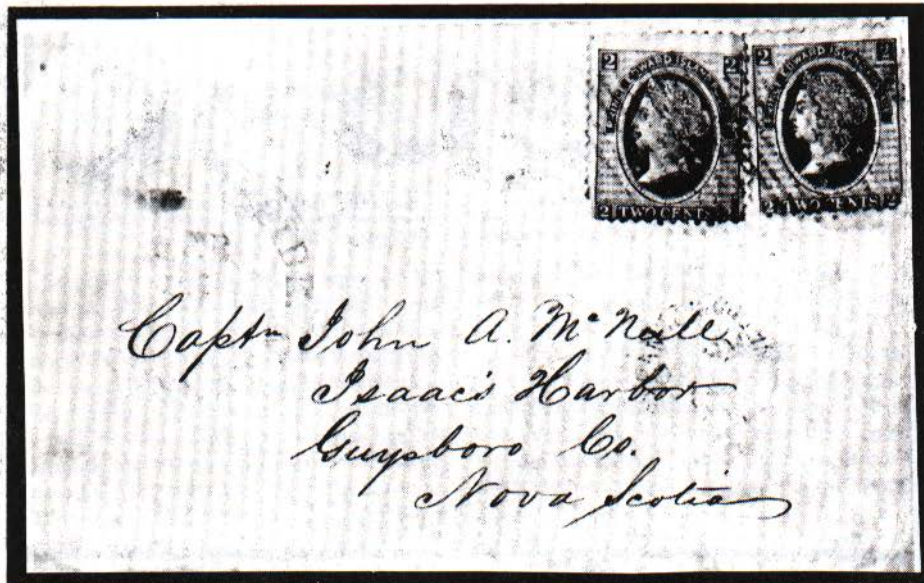 2 2
PRINCE EDWARD ISLAND
2 TWO CENTS
2 2
EDWARD ISLAND
TWO CENTS 2
Captn John A. McNeill
Isaac's Harbor
Guysboro Co.
Nova Scotia